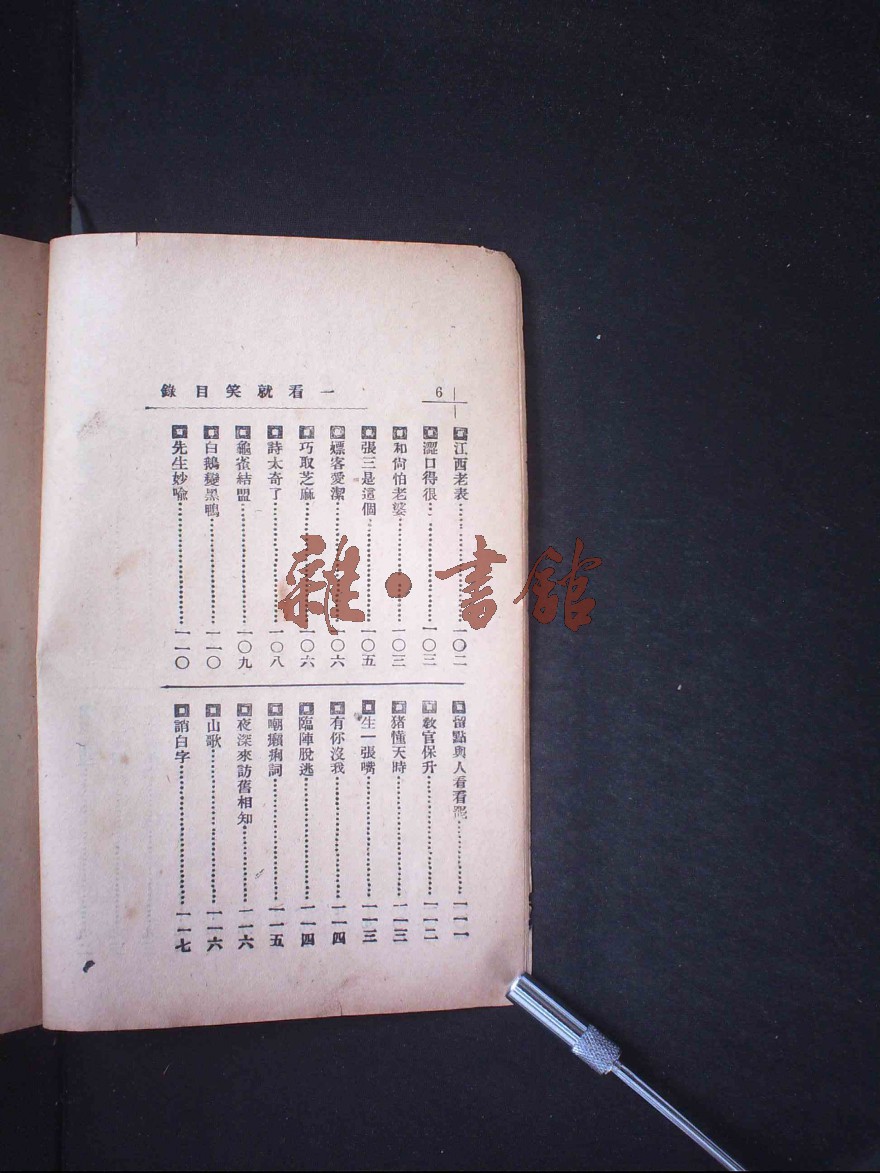 一看就笑目錄
6
江西老表⋯⋯一〇二
澀口得很⋯⋯一〇三
和尙怕老婆⋯⋯一〇三
張三是這個⋯⋯一〇五
嫖客愛潔⋯⋯一〇六
巧取芝麻⋯⋯一〇六
詩太奇了⋯⋯一〇八
龜雀結盟⋯⋯一〇九
白鵝變黑鴨⋯⋯一一〇
先生妙喩⋯⋯一一〇
留點與人看看罷⋯⋯一一一
敎官保升⋯⋯一一二
猪懂天時⋯⋯一一三
生一張嘴⋯⋯一一三
有你沒我⋯⋯一一四
臨陣脫逃⋯⋯一一四
嘲癩痢詞⋯⋯一一五
夜深來訪舊相知⋯⋯一一六
山歌⋯⋯一一六
誚白字⋯⋯一一七
雜·書館